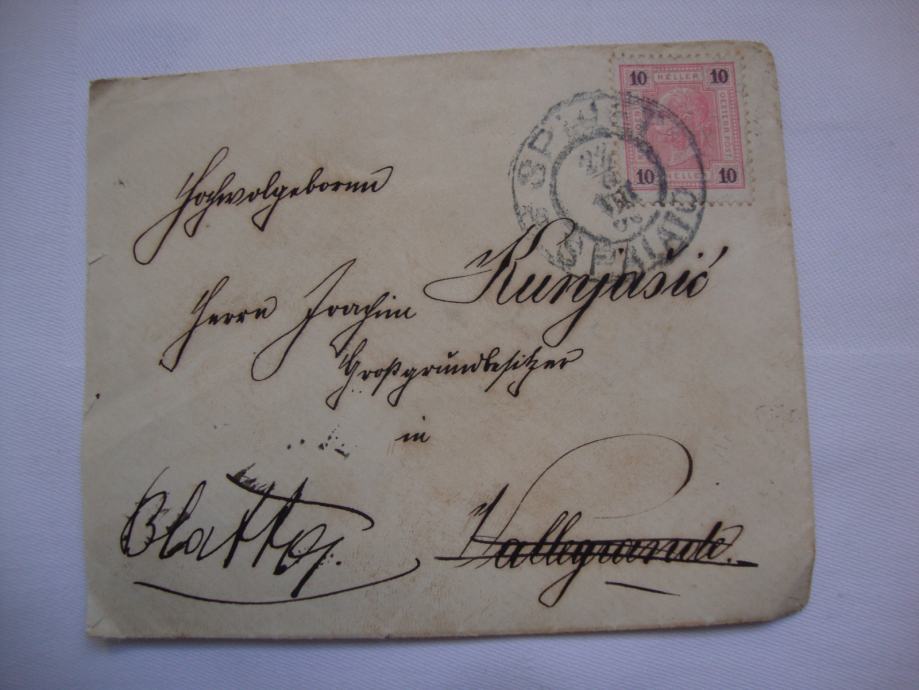 10 HELLER 10
OESTERR. POST
10 HELLER 10
SPLJET
VIII
SPALATO
Hochwolgeboren
Herrn Joachim Kunjašić
Großgrundbesitzer
in
Blatta.
Vallegrande.